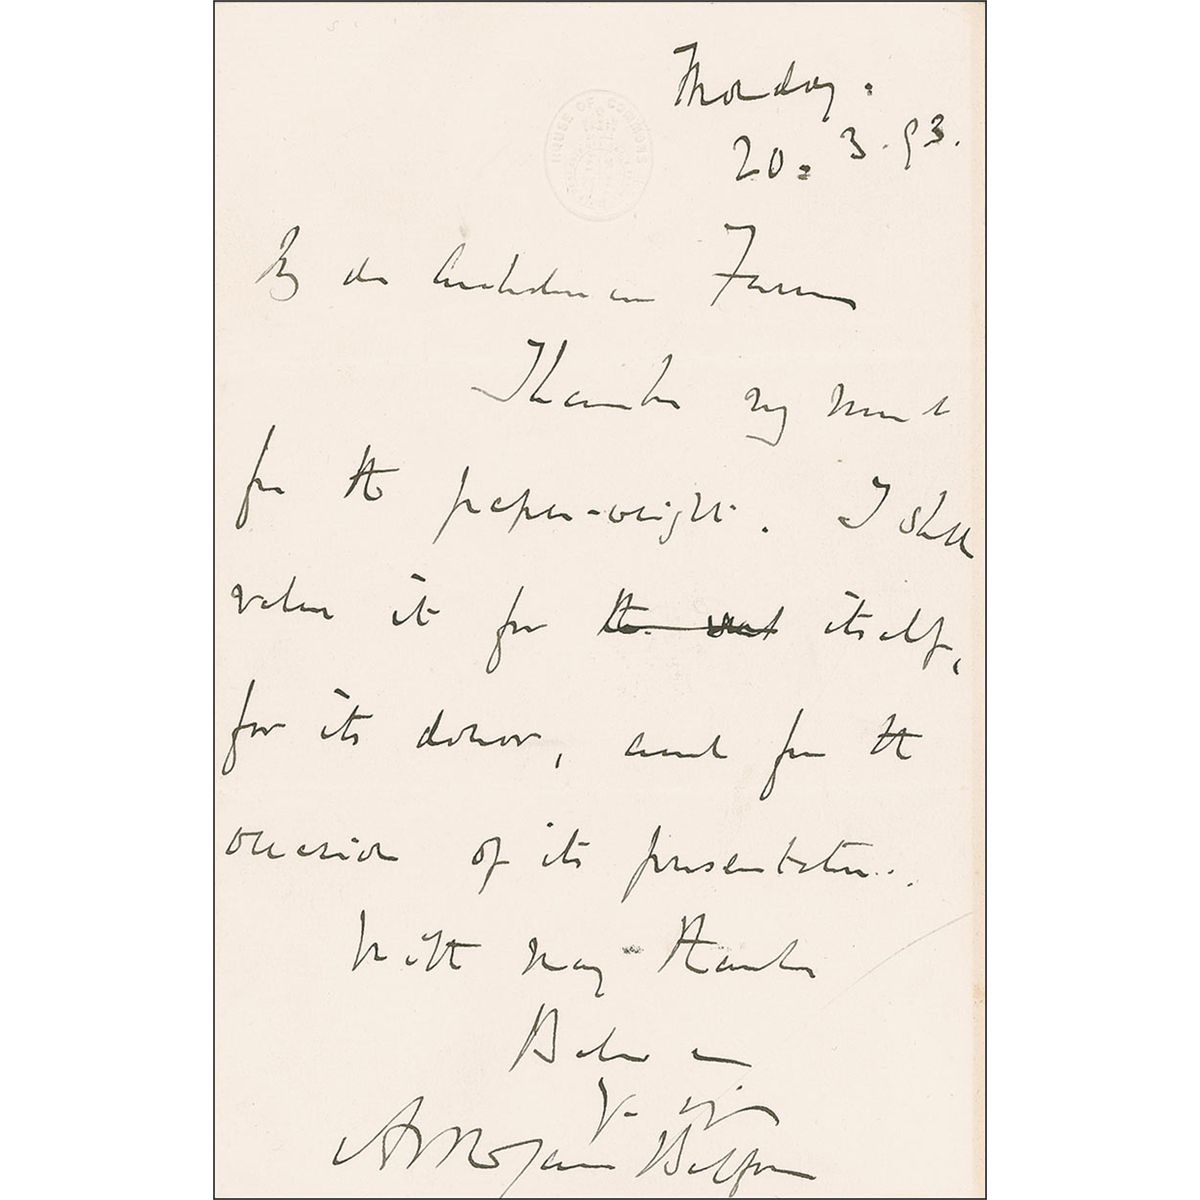 HOUSE OF COMMONS
Monday.
20. 3. 93.
My dear Archdeacon Farrar
Thanks very much
for the paper-weight. I shall
value it for the itself,
for its donor, and for the
occasion of its presentation.
With many thanks
Believe me
Yrs
Arthur James Balfour